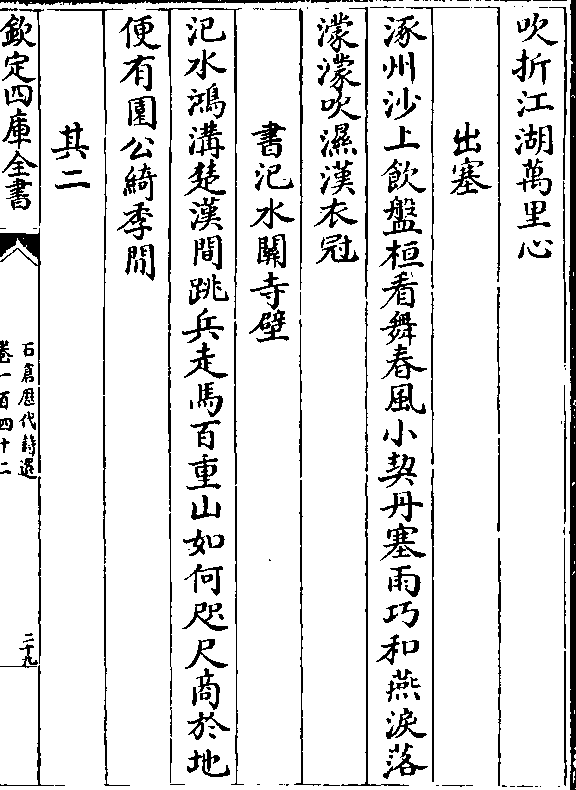 吹折江湖萬里心
出塞
涿州沙上飲盤桓看舞春風小契丹塞雨巧和燕淚落
濛濛吹濕漢衣冠
書汜水關寺壁
汜水鴻溝楚漢間跳兵走馬百重山如何咫尺商於地
便有園公綺季閒
其二
欽定四庫全書
石倉歷代詩選
卷一百四十二
二十九